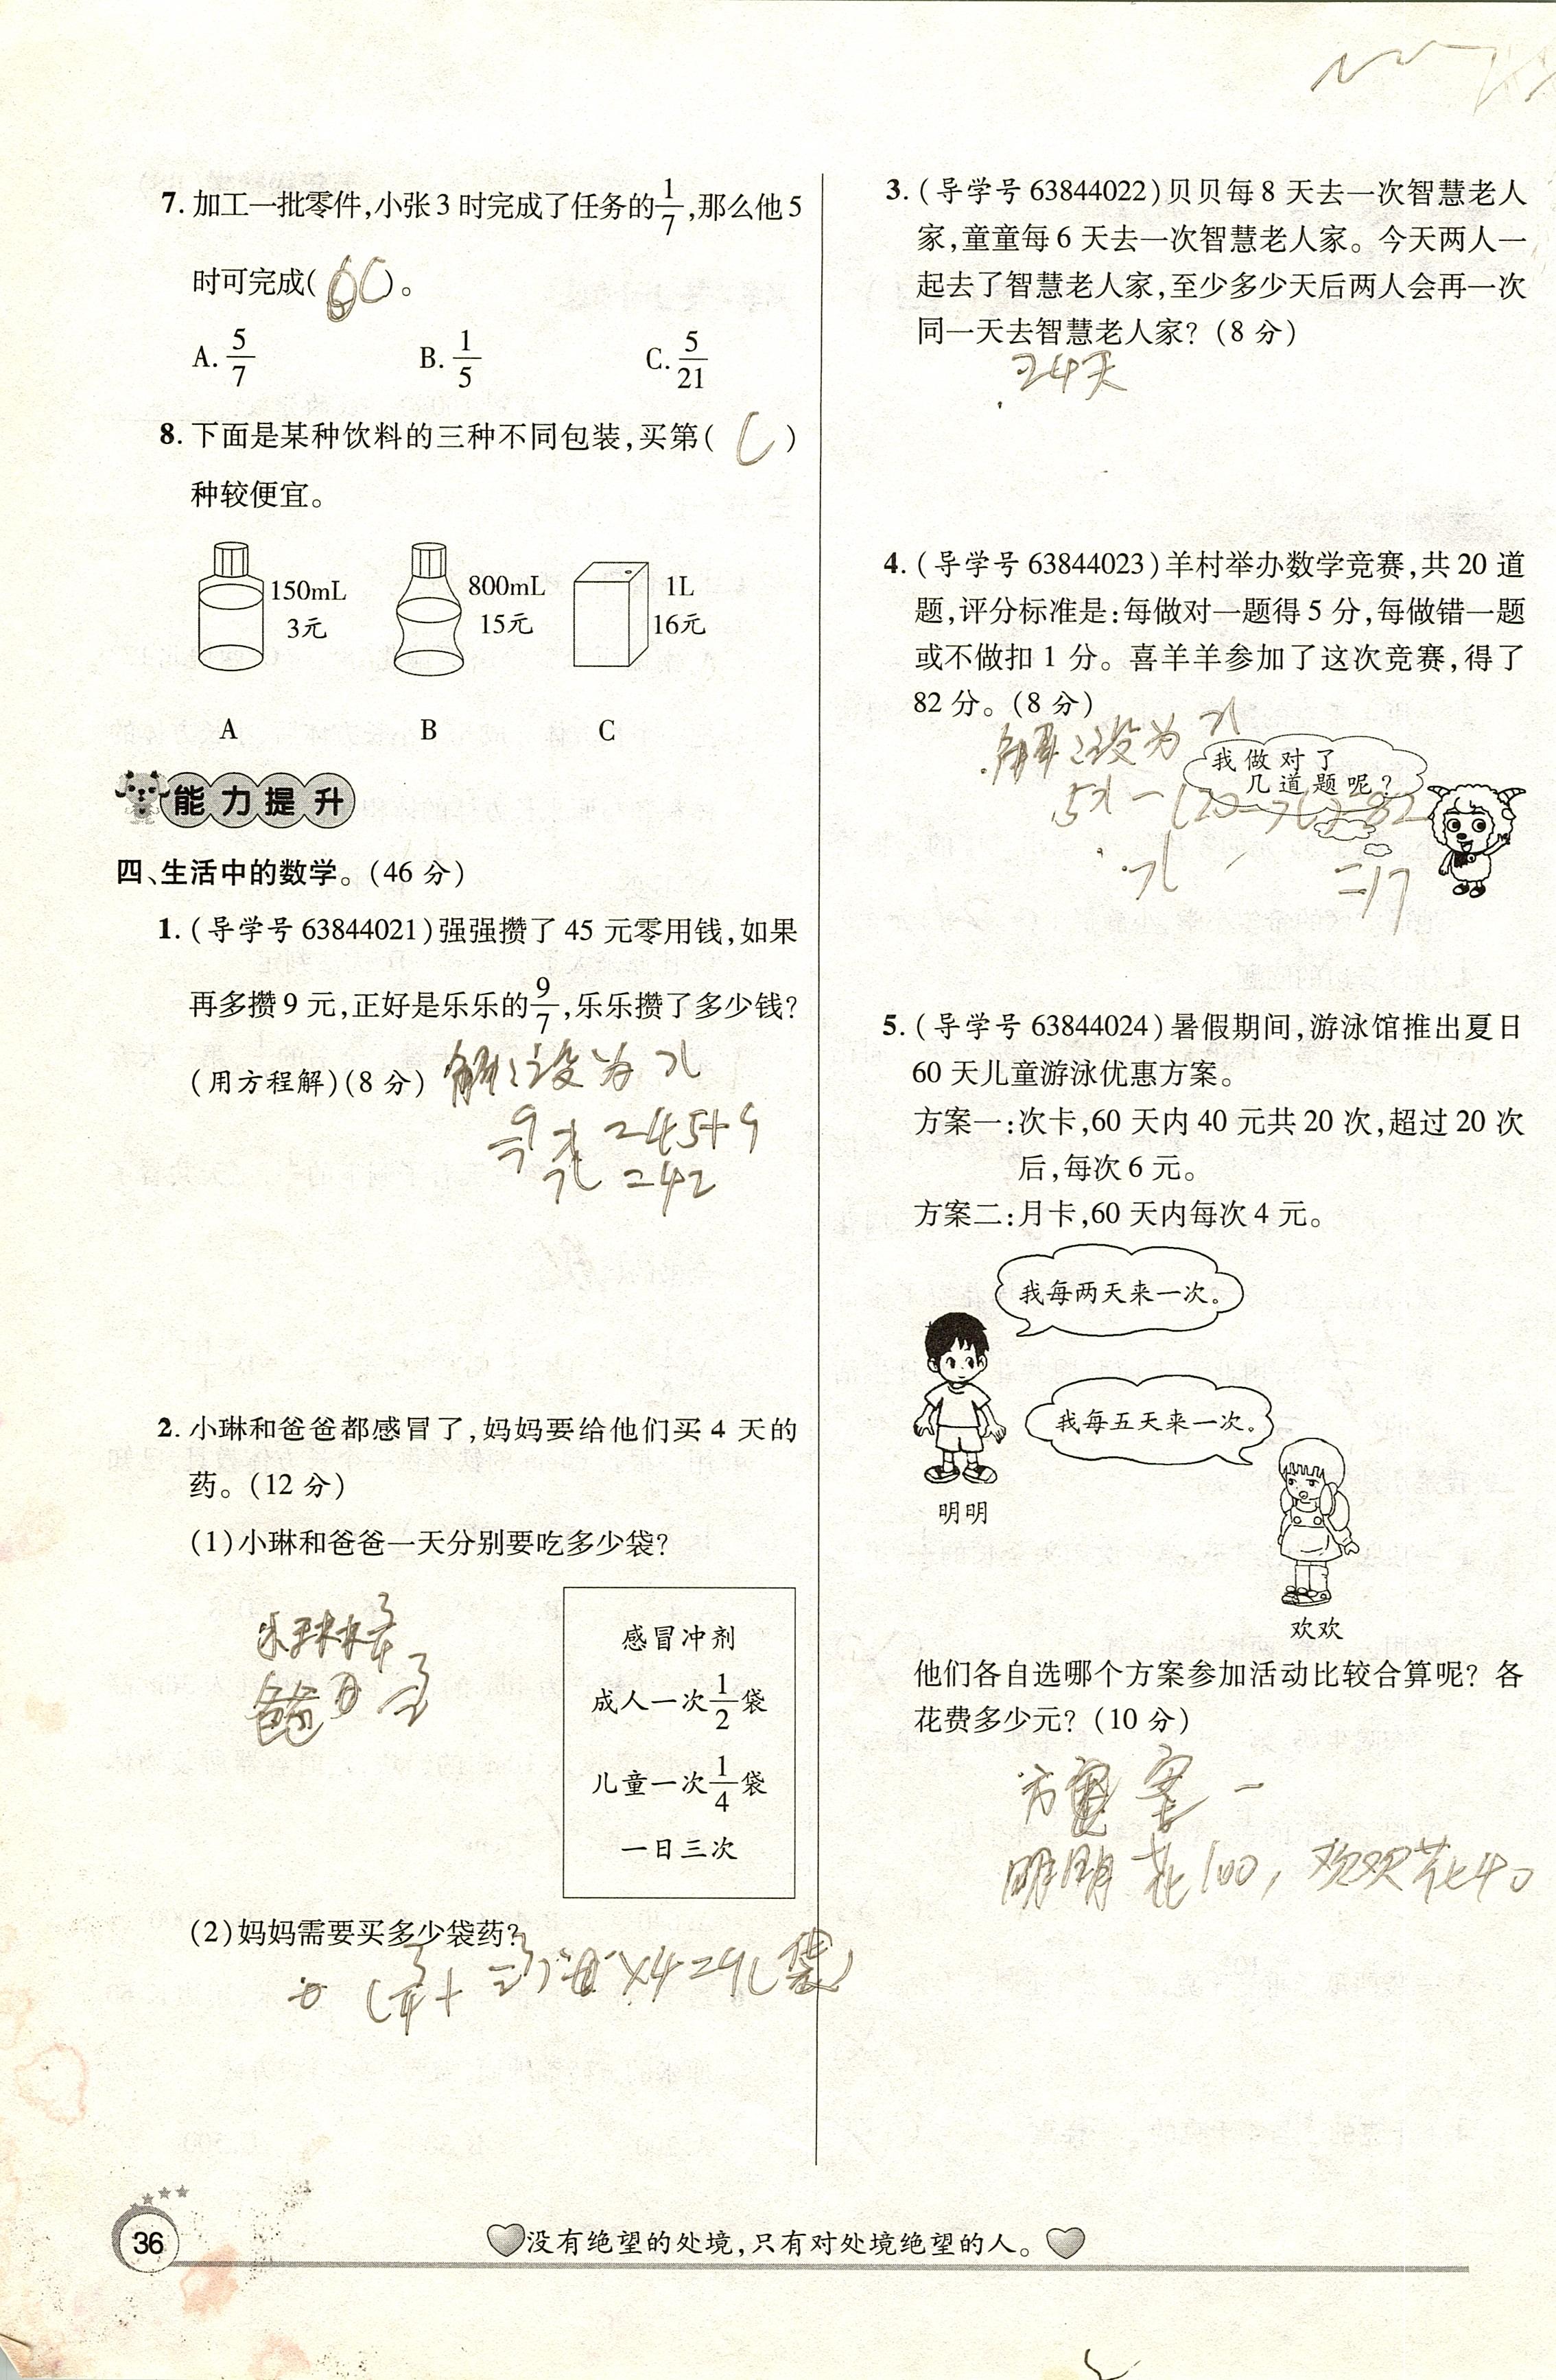 7. 加工一批零件,小张3时完成了任务的1/7,那么他5
时可完成( C )。
A. 5/7 B. 1/5 C. 5/21
8. 下面是某种饮料的三种不同包装,买第( C )
种较便宜。
150mL 800mL 1L
3元 15元 16元
A B C
能力提升
四、生活中的数学。(46分)
1. (导学号 63844021)强强攒了45元零用钱,如果
再多攒9元,正好是乐乐的9/7,乐乐攒了多少钱?
(用方程解)(8分) 解:设为x
9/7x=45+9
x=42
2. 小琳和爸爸都感冒了,妈妈要给他们买4天的
药。(12分)
(1)小琳和爸爸一天分别要吃多少袋?
小琳 3/4
爸爸 3/2
感冒冲剂
成人一次1/2袋
儿童一次1/4袋
一日三次
(2)妈妈需要买多少袋药?
3. (导学号 63844022)贝贝每8天去一次智慧老人
家,童童每6天去一次智慧老人家。今天两人一
起去了智慧老人家,至少多少天后两人会再一次
同一天去智慧老人家?(8分)
24天
4. (导学号 63844023)羊村举办数学竞赛,共20道
题,评分标准是:每做对一题得5分,每做错一题
或不做扣1分。喜羊羊参加了这次竞赛,得了
82分。(8分)
解:设为x
我做对了
几道题呢?
5x-(20-x)=82
x=17
5. (导学号 63844024)暑假期间,游泳馆推出夏日
60天儿童游泳优惠方案。
方案一:次卡,60天内40元共20次,超过20次
后,每次6元。
方案二:月卡,60天内每次4元。
我每两天来一次。
我每五天来一次。
明明
欢欢
他们各自选哪个方案参加活动比较合算呢?各
花费多少元?(10分)
方案一
明明花100,欢欢花40
36
没有绝望的处境,只有对处境绝望的人。